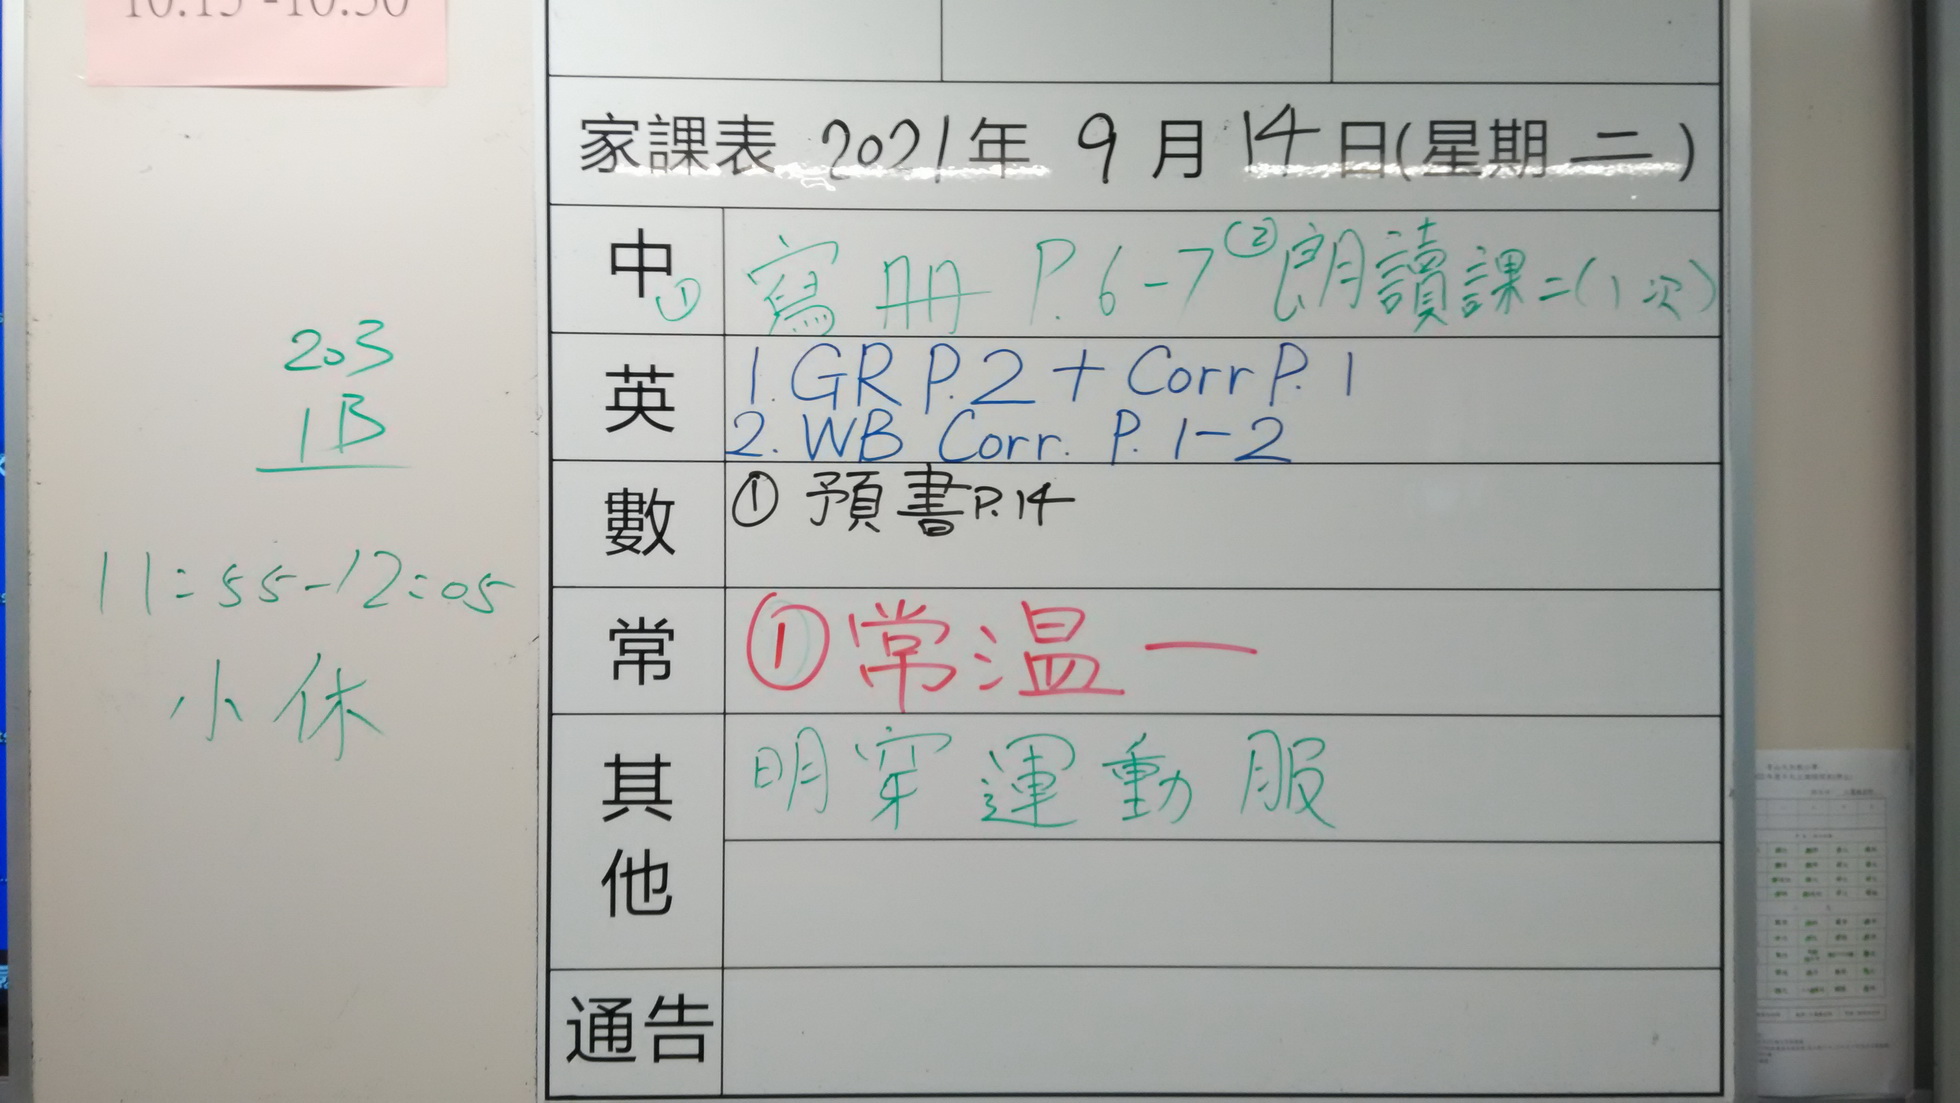 10:15-10:30
203
1B
11:55-12:05
小休
家課表 2021年 9月 14日(星期 二)
中 ① 寫冊 P.6-7 ② 朗讀課二(1次)
英 1. GR P.2 + Corr P.1
2. WB Corr. P.1-2
數 ① 預書P.14
常 ① 常温一
其他 明穿運動服
通告